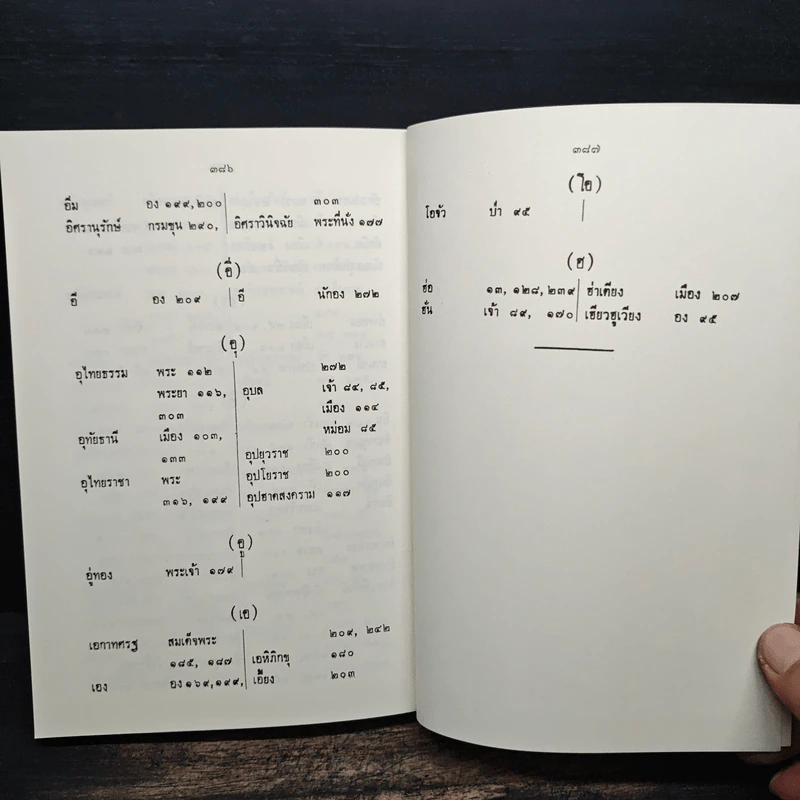 ๓๘๖
อิ่ม อง ๑๙๙,๒๐๐ ๓๐๓
อิศรานุรักษ์ กรมขุน ๒๙๐, อิศราวินิจฉัย พระที่นั่ง ๑๗๗
(อี)
อี อง ๒๐๙ อี นักอง ๒๗๒
(อุ)
อุไทยธรรม พระ ๑๑๒ ๒๗๒
พระยา ๑๑๖, อุบล เจ้า ๘๔, ๘๕,
๓๐๓ เมือง ๑๑๔
อุทัยธานี เมือง ๑๐๓, หม่อม ๘๕
๑๓๓ อุปยุวราช ๒๐๐
อุไทยราชา พระ อุปโยราช ๒๐๐
๓๑๖, ๑๙๙ อุปฮาดสงคราม ๑๑๗
(อู)
อู่ทอง พระเจ้า ๑๗๙
(เอ)
เอกาทศรฐ สมเด็จพระ ๒๐๙, ๒๔๒
๑๘๕, ๑๘๗ เอหิภิกขุ ๑๘๐
เอง อง ๑๖๙,๑๙๙, เอี้ยง ๒๐๓
๓๘๗
(โอ)
โอจัว บ่า ๙๕
(ฮ)
ฮ่อ ๑๓, ๑๒๘, ๒๓๙ ฮ่าเตียง เมือง ๒๐๗
ฮั่น เจ้า ๘๙, ๑๗๐ เฮียวฮูเวียง อง ๙๕